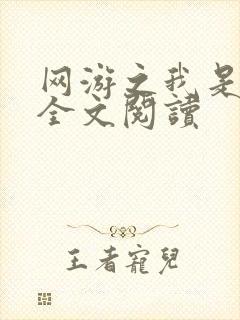 网游之我是
全文閱讀
王者寵兒